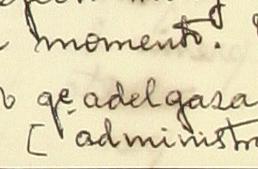 momento.
qe adelgasa
[ administr